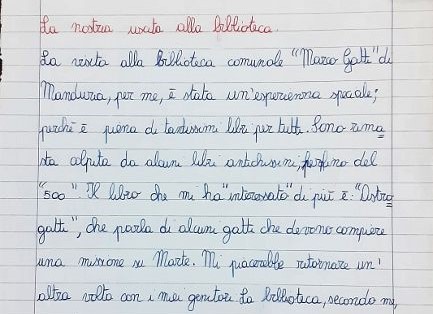 La nostra uscita alla biblioteca.
La visita alla Biblioteca comunale "Marco Gatti" di
Manduria, per me, è stata un'esperienza speciale;
perchè è piena di tantissimi libri per tutti. Sono rima
sta colpita da alcuni libri antichissimi, perfino del
"500". Il libro che mi ha "interessato" di più è: "Astro
gatti", che parla di alcuni gatti che devono compiere
una missione su Marte. Mi piacerebbe ritornare un'
altra volta con i miei genitori La biblioteca, secondo me,